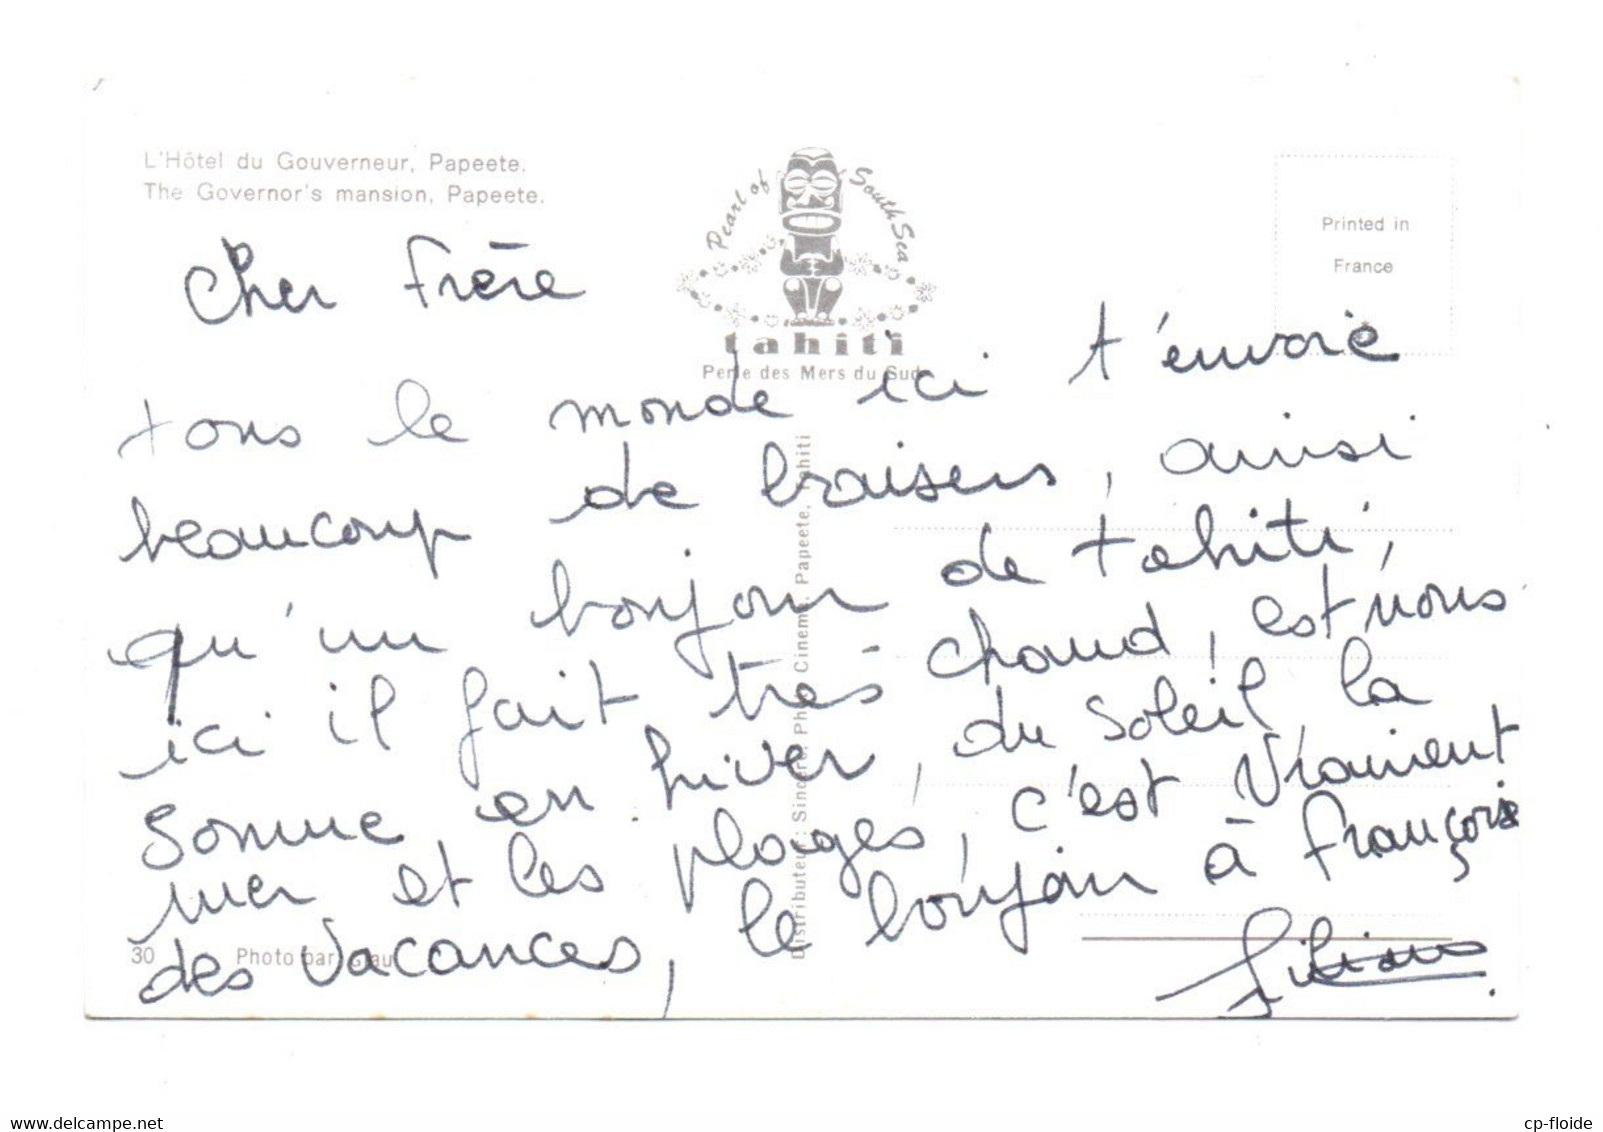 L'Hôtel du Gouverneur, Papeete.
The Governor's mansion, Papeete.
Pearl of South Sea
tahiti
Perle des Mers du Sud
Printed in
France
Cher Frère
tous le monde ici t'envoie
beaucoup de baisers, ainsi
qu'un bonjour de tahiti,
ici il fait très chaud, est nous
somme en hiver, du soleil la
mer et les plages, c'est vraiment
des vacances, le bonjour à Françoise
30 Photo par
Distributeur: Sincère, Photo Cinema, Papeete, Tahiti
www.delcampe.net
cp-floide